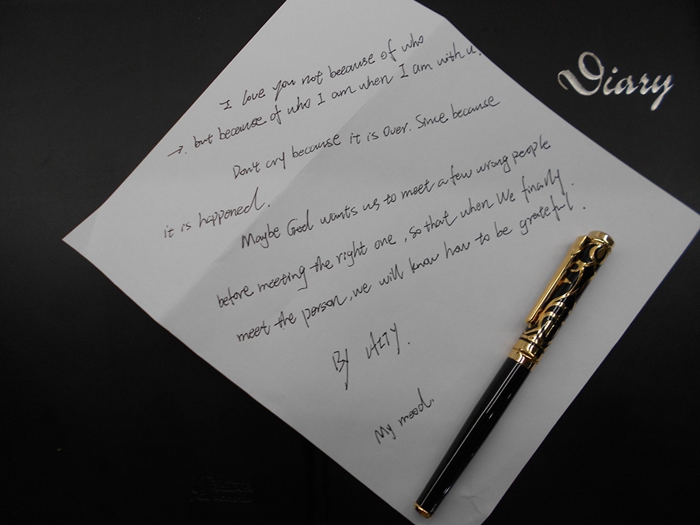 Diary
I love you not because of who
→. but because of who I am when I am with u.
Don't cry because it is over. Since because
it is happened.
Maybe God wants us to meet a few wrong people
before meeting the right one, so that when we finally
meet the person, we will know how to be grateful.
By
My mood.